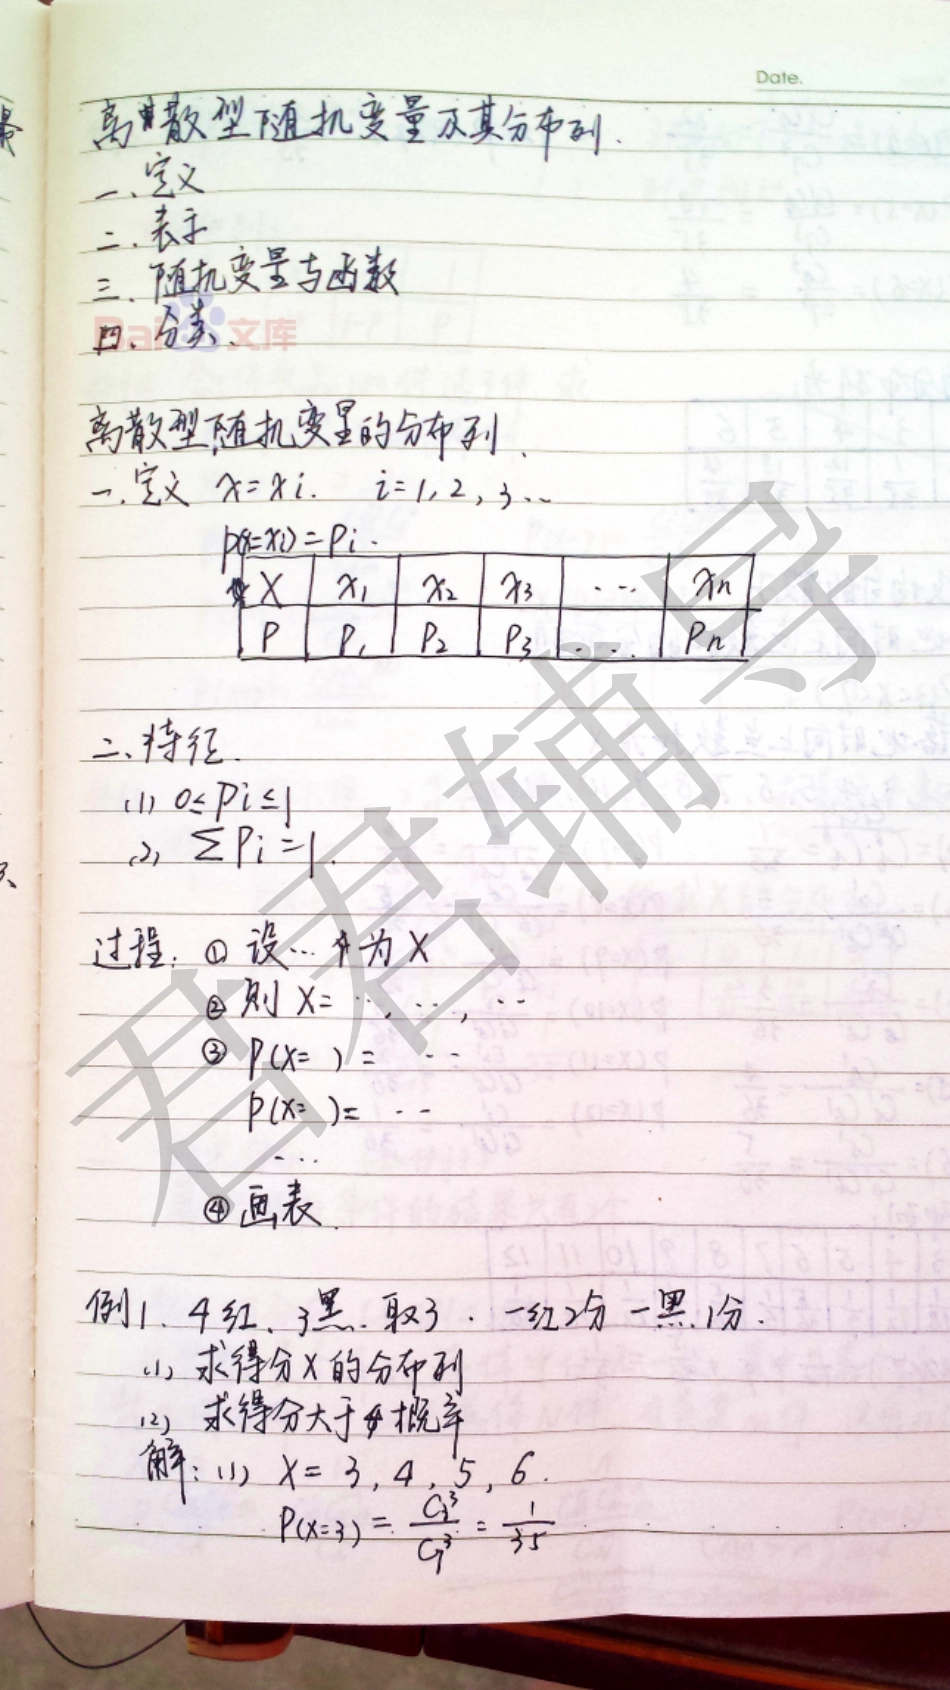 Date.
离散型随机变量及其分布列.
一、定义
二、表示
三、随机变量与函数
四、分类.
Bai 文库
离散型随机变量的分布列.
一、定义 x=xi. i=1,2,3...
p(x=xi)=Pi.
X x1 x2 x3 ... xn
P P1 P2 P3 ... Pn
二、特征.
(1) 0≤Pi≤1
(2) ΣPi=1.
过程: ① 设...为X
② 则X=...,...,...
③ P(X= )= ...
P(X= )= ...
...
④ 画表.
例1. 4红、3黑.取3. 一红2分 一黑1分.
(1) 求得分X的分布列
(2) 求得分大于 概率
解: (1) X=3,4,5,6.
P(X=3)=C₃³/C₇³=1/35
君君辅导